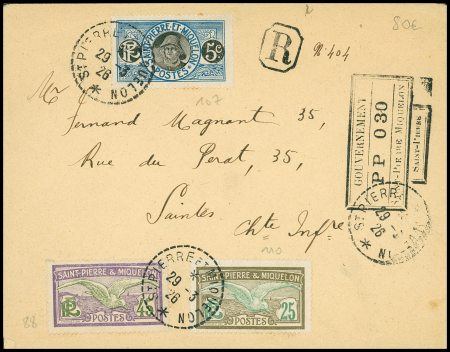 80€
ST PIERRE ET MIQUELON
29 -3
26
SAINT-PIERRE-ET-MIQUELON
RF
5c
POSTES
R
N° 404
107
Mr
Fernand Magnant 35,
Rue du Perat, 35,
Saintes
Chte Infre
GOUVERNEMENT
PP 0 30
ST-PIERRE MIQUELON
SAINT-PIERRE
ST PIERRE
29 -3
26
110
SAINT-PIERRE & MIQUELON
RF
45
POSTES
ST PIERRE ET MIQUELON
29 -3
26
SAINT-PIERRE & MIQUELON
25
POSTES
88